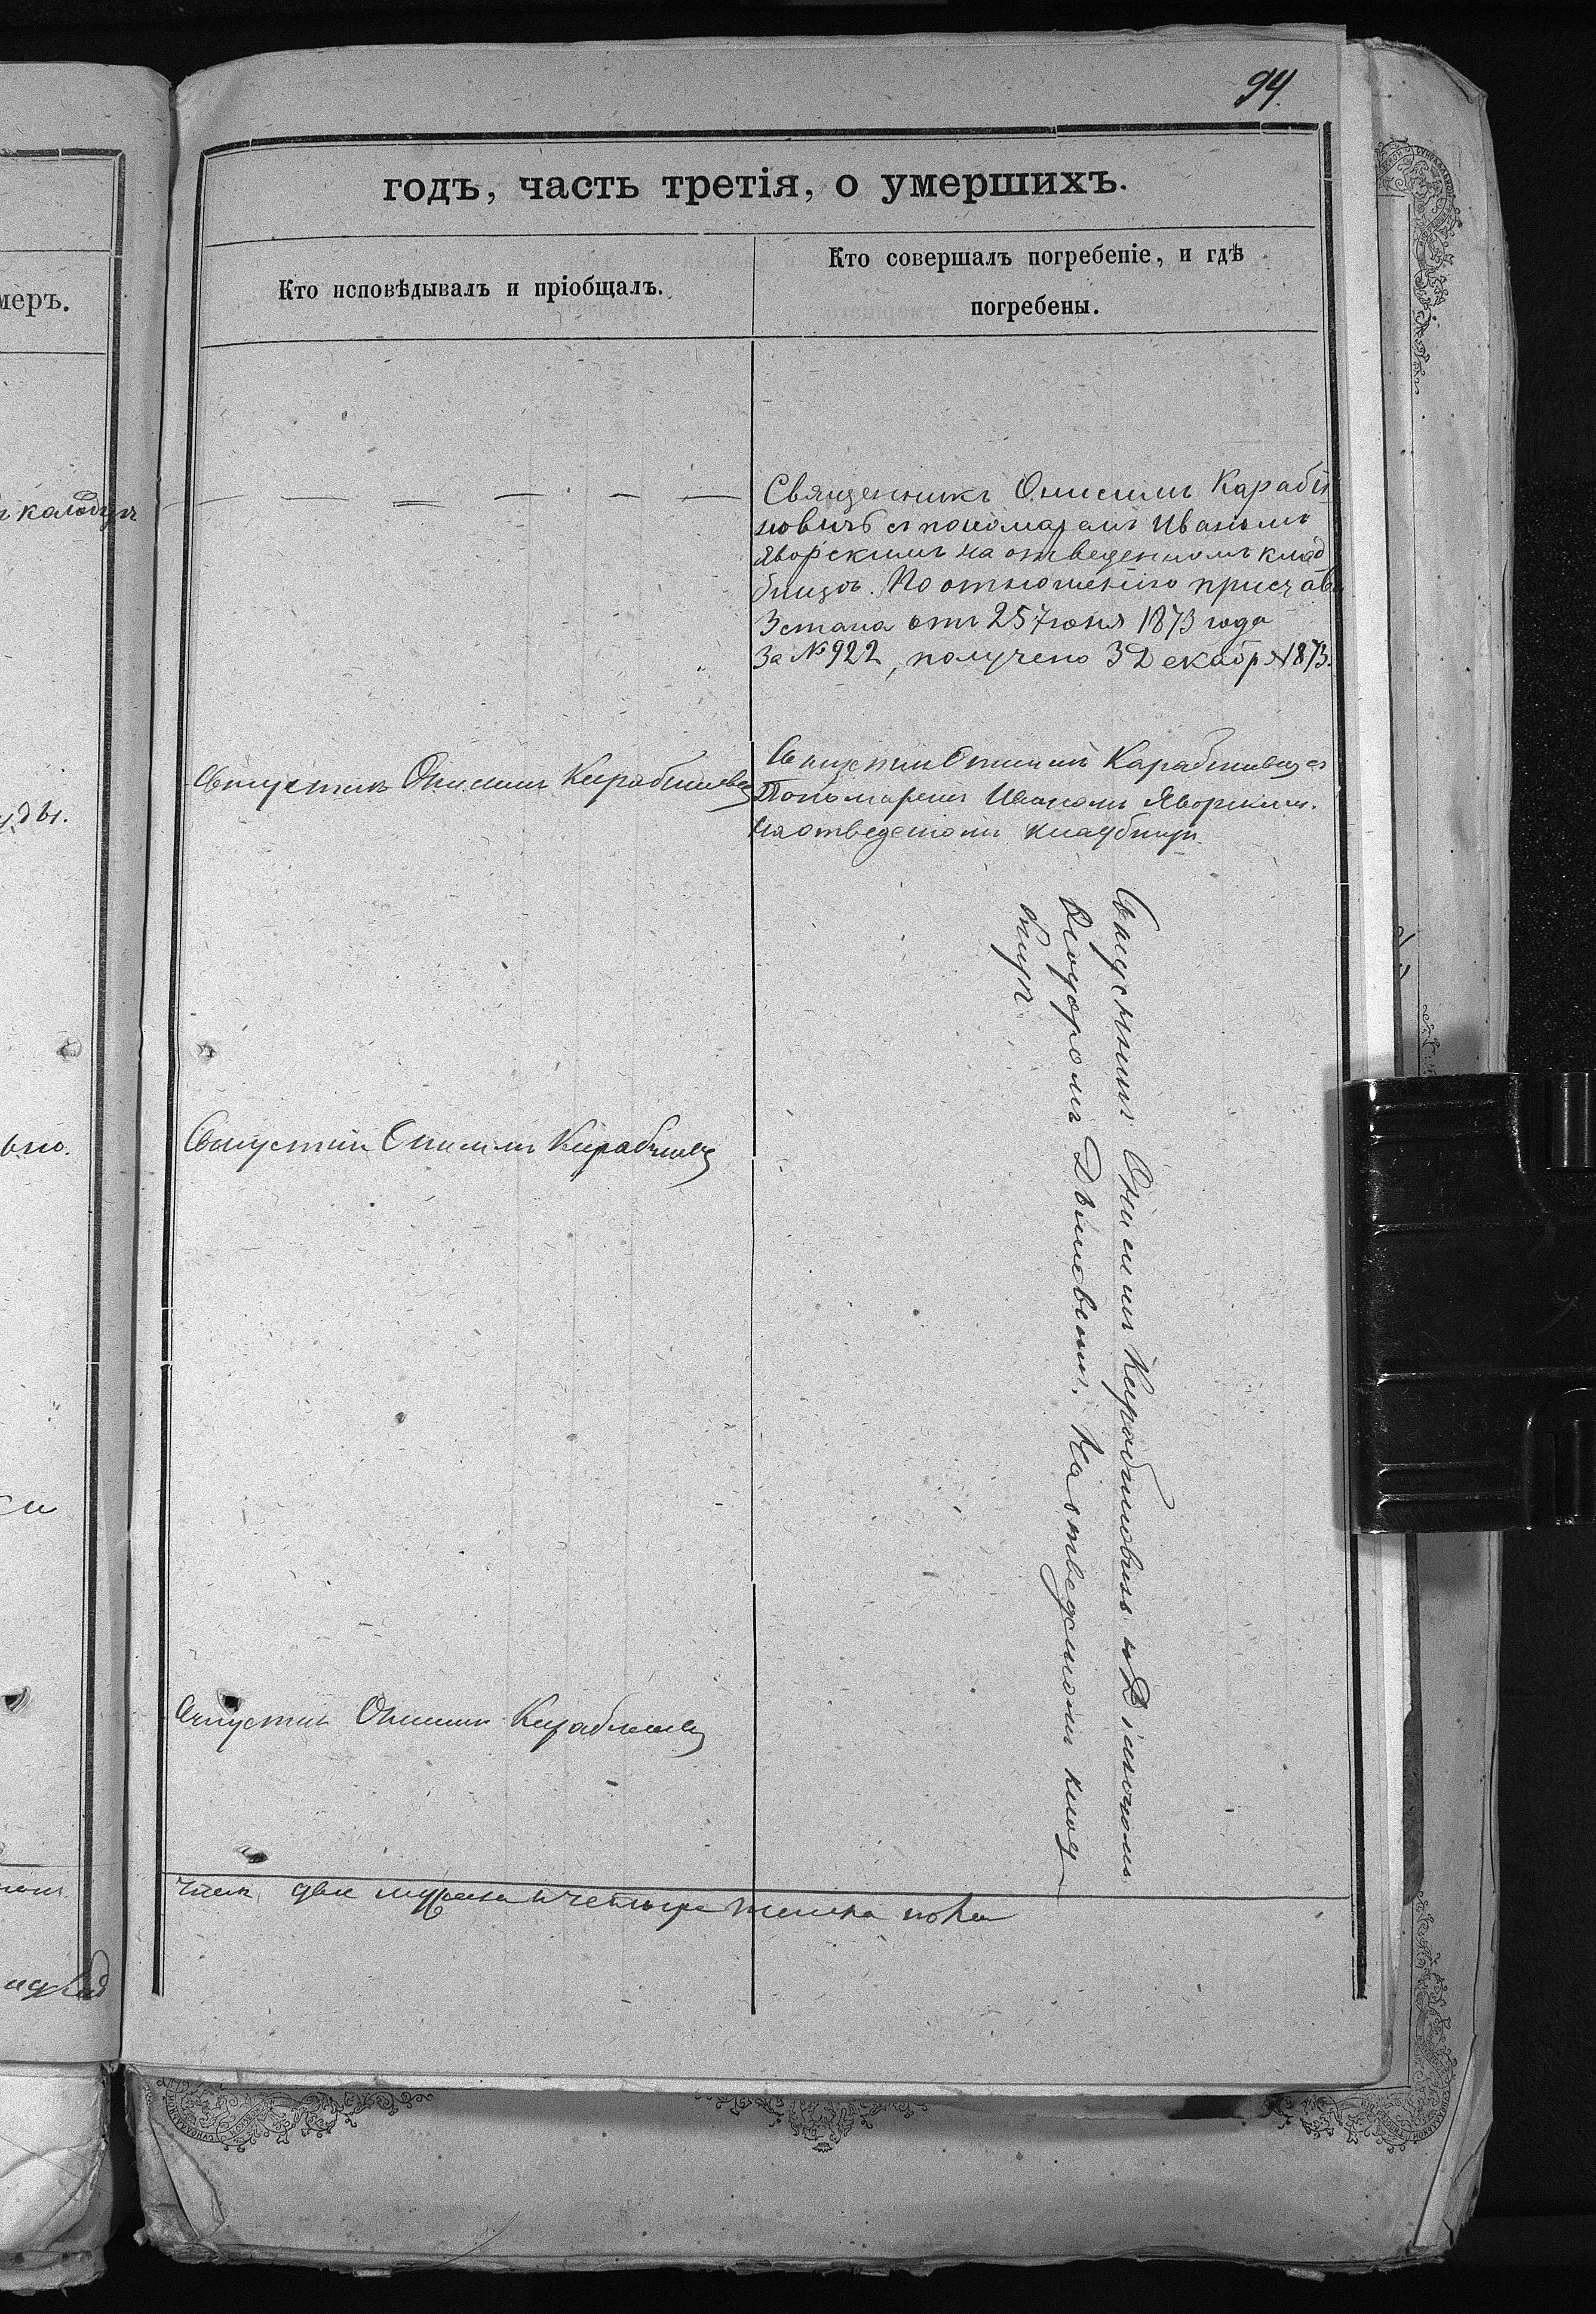 94.
годъ, часть третія, о умершихъ.
меръ.
Кто исповѣдывалъ и пріобщалъ.
Кто совершалъ погребеніе, и гдѣ
погребены.
Священникъ Онисимъ Караби
новичъ съ пономаремъ Иваномъ
Яворскимъ на отведенномъ клад
бищѣ. По отношенію пристава
3 стана отъ 25 Іюня 1873 года
За № 922, получено 3 Декабря 1873.
Священникъ Онисимъ Карабиновичъ
Священникъ Онисимъ Карабиновичъ съ
Пономаремъ Иваномъ Яворскимъ.
На отведеномъ кладбищѣ.
Священникъ Онисимъ Карабиновичъ
Священникъ Онисимъ Карабиновичъ
Священникъ Онисимъ Карабиновичъ и Діякономъ
Ѳеодоромъ На отведеномъ клад
бищѣ.
два мужеска и четыре женска пола